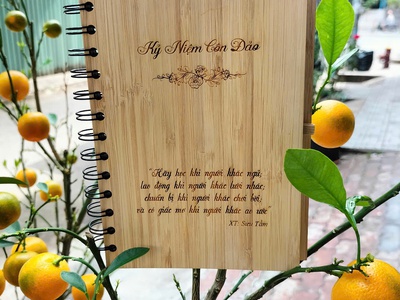 Kỷ Niệm Côn Đảo
"Hãy học khi người khác ngủ;
lao động khi người khác lười nhác;
chuẩn bị khi người khác chơi bời;
và có giấc mơ khi người khác ao ước"
XT: Siêu Tầm